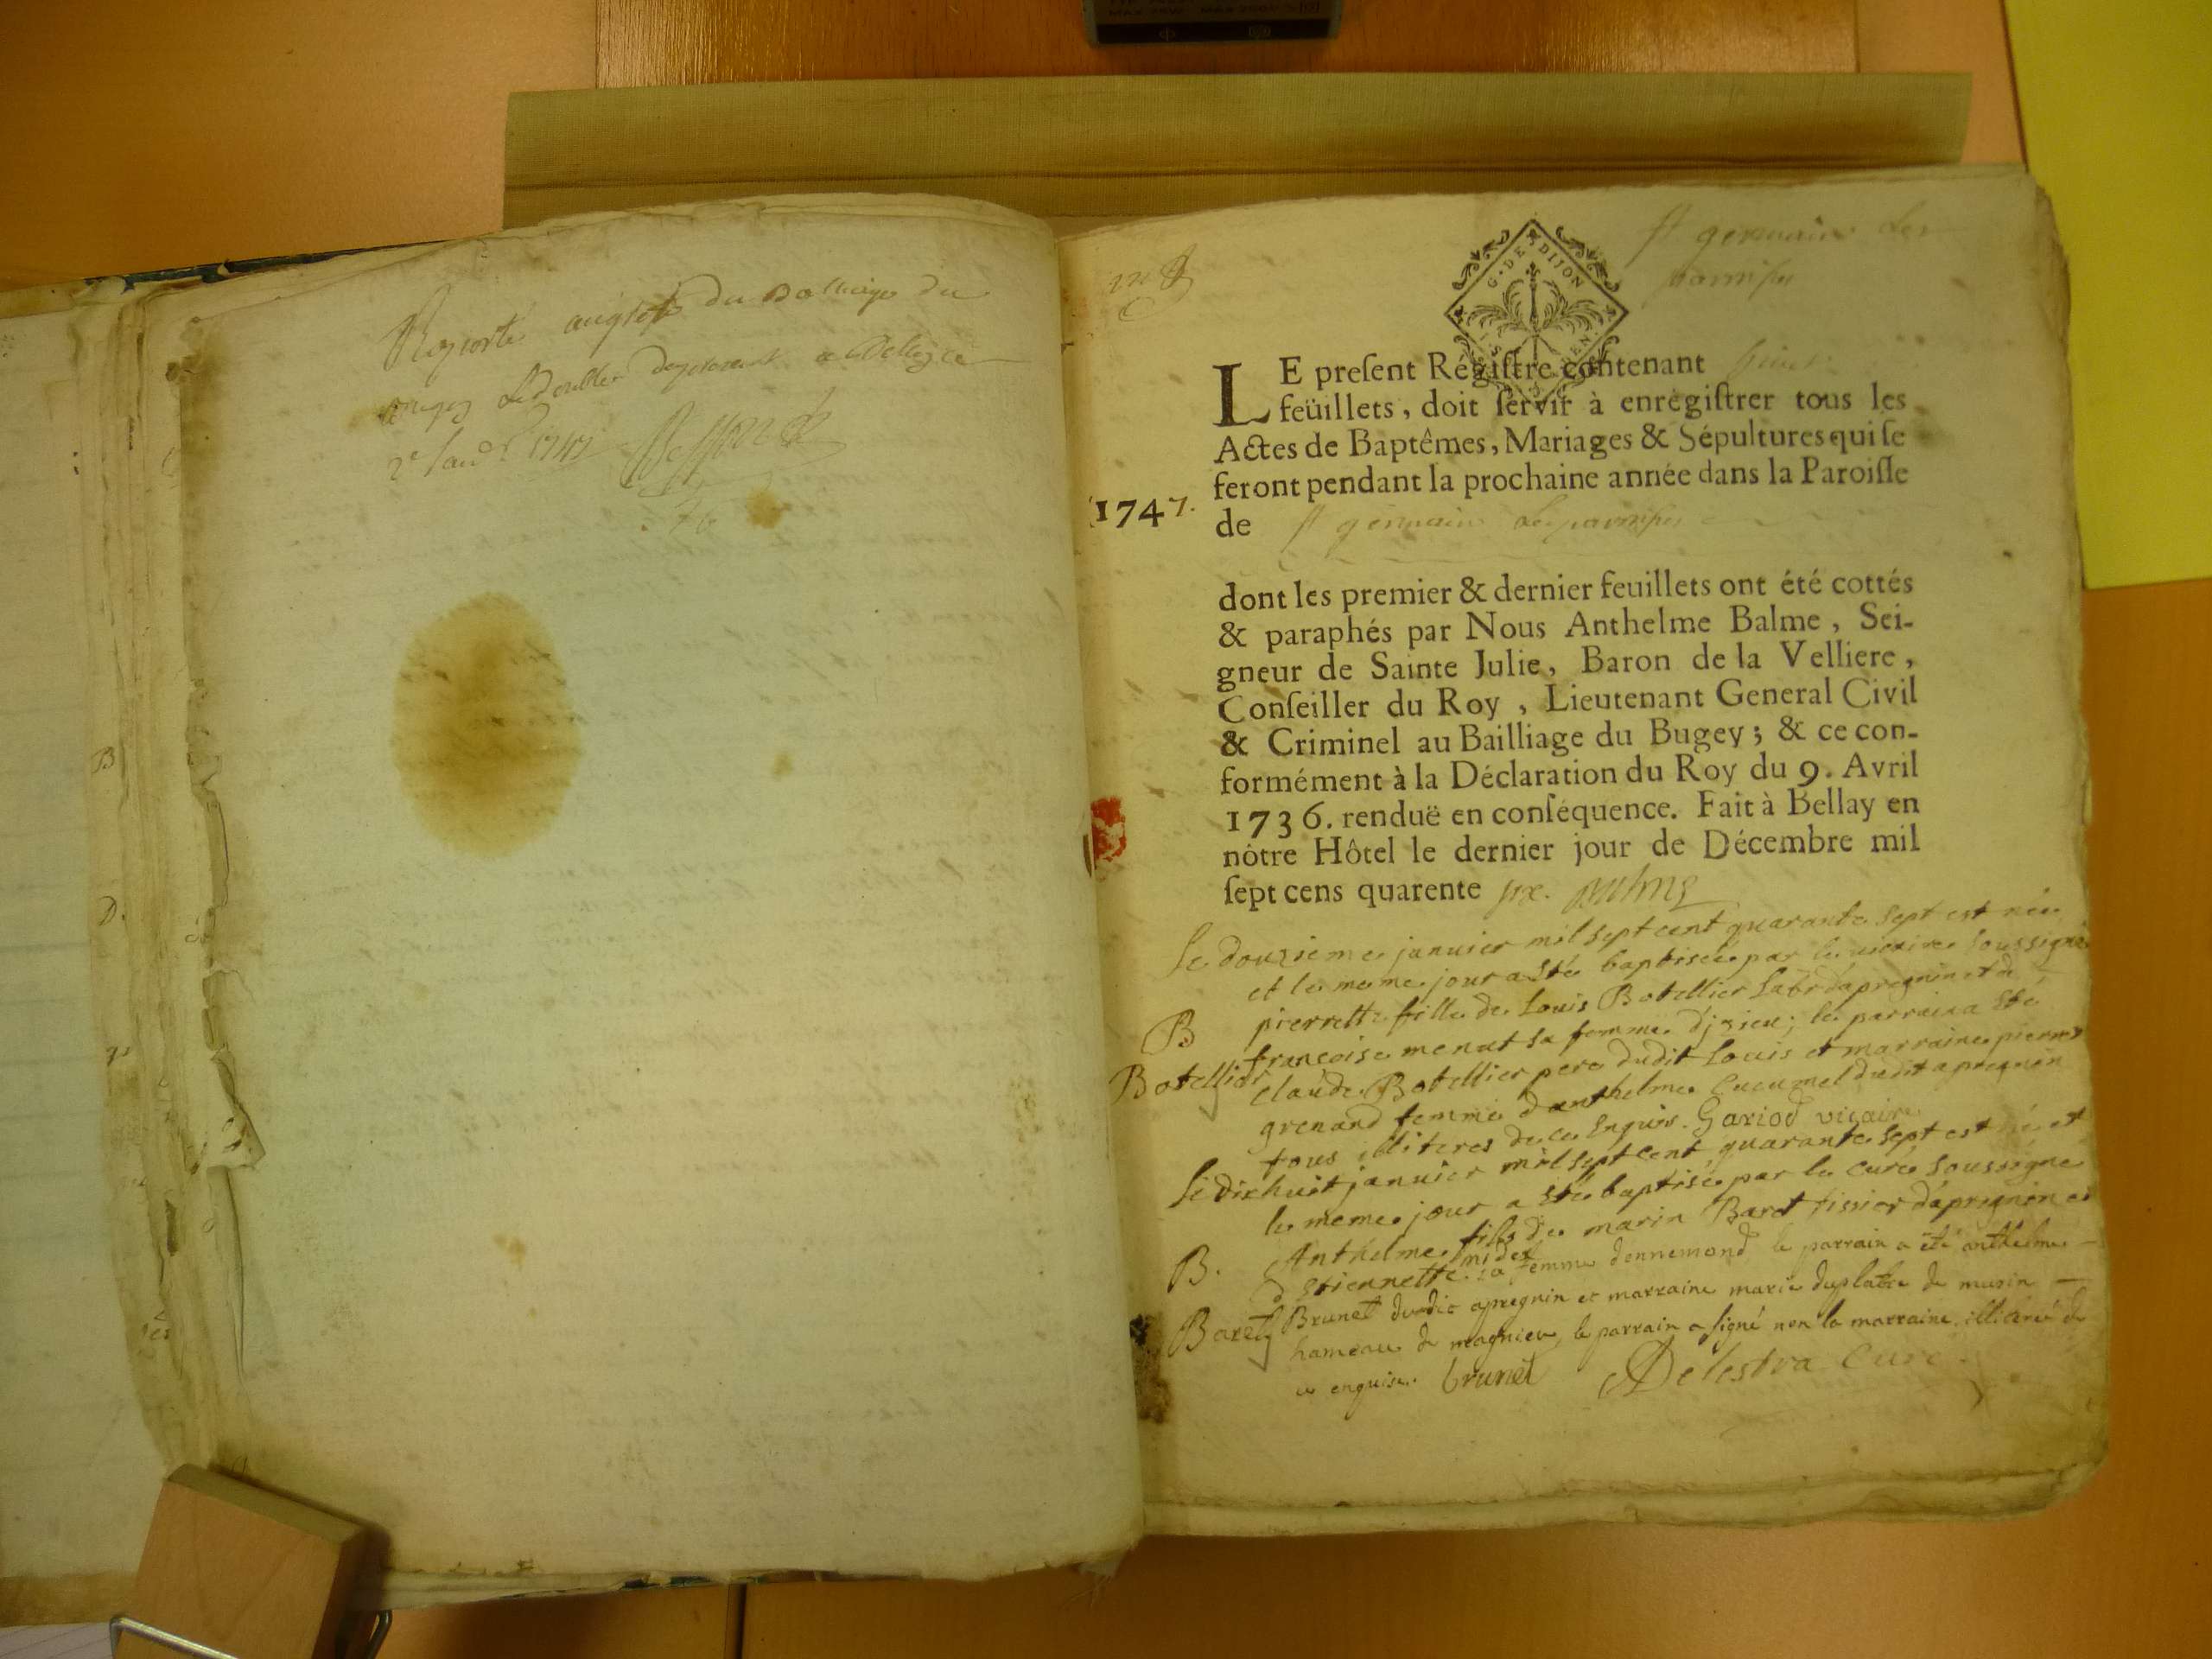 Reporté au greffe du Balliage du
Bugey le double deposant a Belley ce
2e Janv. 1747
st germain les
paroisses
G. DE DIJON
LE preſent Régiſtre contenant huit
feüillets, doit ſervir à enrégiſtrer tous les
Actes de Baptêmes, Mariages & Sépultures qui ſe
feront pendant la prochaine année dans la Paroiſſe
1747.
de st germain les paroisses
dont les premier & dernier feuillets ont été cottés
& paraphés par Nous Anthelme Balme, Sei-
gneur de Sainte Julie, Baron de la Velliere,
Conſeiller du Roy, Lieutenant General Civil
& Criminel au Bailliage du Bugey; & ce con-
formément à la Déclaration du Roy du 9. Avril
1736. renduë en conſéquence. Fait à Bellay en
nôtre Hôtel le dernier jour de Décembre mil
ſept cens quarente six. Balme
Le douzieme januier mil sept cent quarante sept est née
et le meme jour a sté baptisée par le vicaire soussigné
B
pierrette fille de Louis Botellier labr d'apregnin et de
francoise menat sa femme d'jzieu; le parrain a sté
Botellier
claude Botellier pere dudit Louis et marraine pierrette
grenand femme d'anthelme Cucumel dudit apregnin
tous illiteres de ce enquis. Gariod vicaire
Le dixhuit januier mil sept cent quarante sept est né et
le meme jour a sté baptisé par le curé soussigné
B.
Anthelme fils de marin Baret tissier d'apregnin et
d'Etiennette midel sa femme dennemond le parrain a été anthelme
Baret
Brunet dudit apregnin et marraine marie duplatre de murin
hameau de magnieu, le parrain a signé non la marraine illiteré de
ce enquise. brunet Delestra Curé